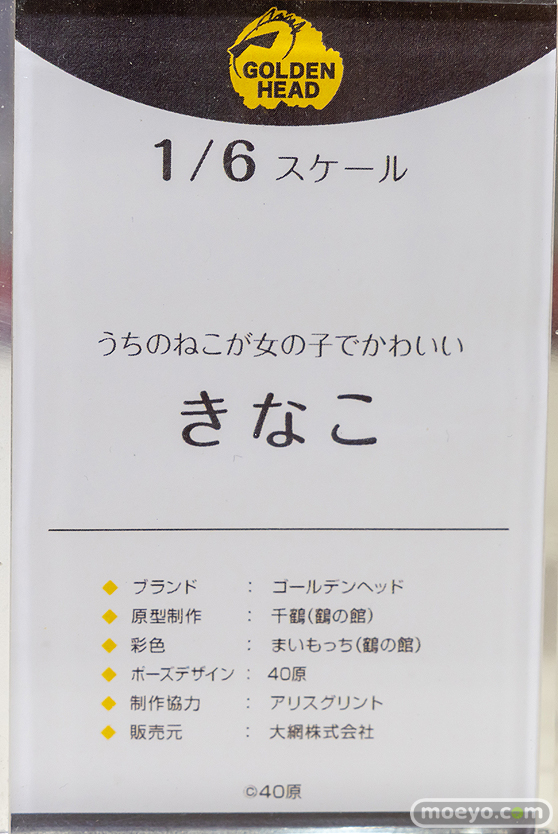 GOLDEN
HEAD
1/6 スケール
うちのねこが女の子でかわいい
きなこ
◆ ブランド : ゴールデンヘッド
◆ 原型制作 : 千鶴(鶴の館)
◆ 彩色 : まいもっち(鶴の館)
◆ ポーズデザイン : 40原
◆ 制作協力 : アリスグリント
◆ 販売元 : 大網株式会社
©40原
moeyo.com